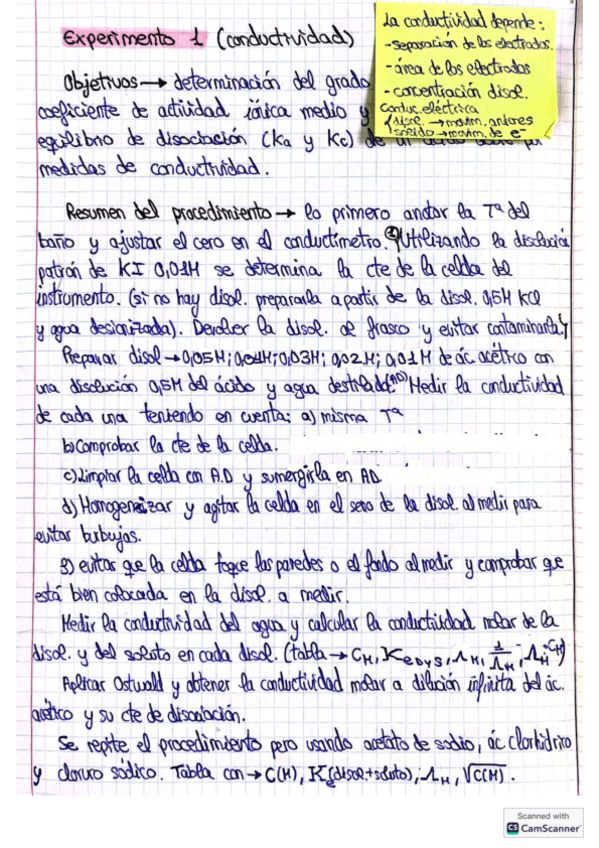 Experimento 1 (conductividad)
La conductividad depende:
- separación de los electrodos.
- área de los electrodos
- concentración disol.
Conduc. eléctrica
disol. → movim. aniones
sólido → movim. de e⁻
Objetivos → determinación del grado
coeficiente de actividad iónica medio y
equilibrio de disociación (Ka y Kc) de un ácido débil por
medidas de conductividad.
Resumen del procedimiento → lo primero anotar la Tª del
baño y ajustar el cero en el conductímetro. Utilizando la disolución
patrón de KI 0,01M se determina la cte de la celda del
instrumento. (si no hay disol. prepararla a partir de la disol. 0,5M KCl
y agua desionizada). Devolver la disol. al frasco y evitar contaminarla
Preparar disol → 0,05M; 0,04M; 0,03M; 0,02M; 0,01M de ác. acético con
una disolución 0,5M del ácido y agua destilada (AD) Medir la conductividad
de cada una teniendo en cuenta: a) misma Tª
b) Comprobar la cte de la celda.
c) Limpiar la celda con A.D y sumergirla en AD
d) Homogeneizar y agitar la celda en el seno de la disol. al medir para
evitar burbujas.
g) evitar que la celda toque las paredes o el fondo al medir y comprobar que
está bien colocada en la disol. a medir.
Medir la conductividad del agua y calcular la conductividad molar de la
disol. y del soluto en cada disol. (tabla → CM, Ke D y S, ΛM, 1/ΛM, ΛM·CM)
Aplicar Ostwald y obtener la conductividad molar a dilución infinita del ác.
acético y su cte de disociación.
Se repite el procedimiento pero usando acetato de sodio, ác clorhídrico
y cloruro sódico. Tabla con → C(M), Ke (disol. + soluto), ΛM, √C(M).
Scanned with
CS CamScanner